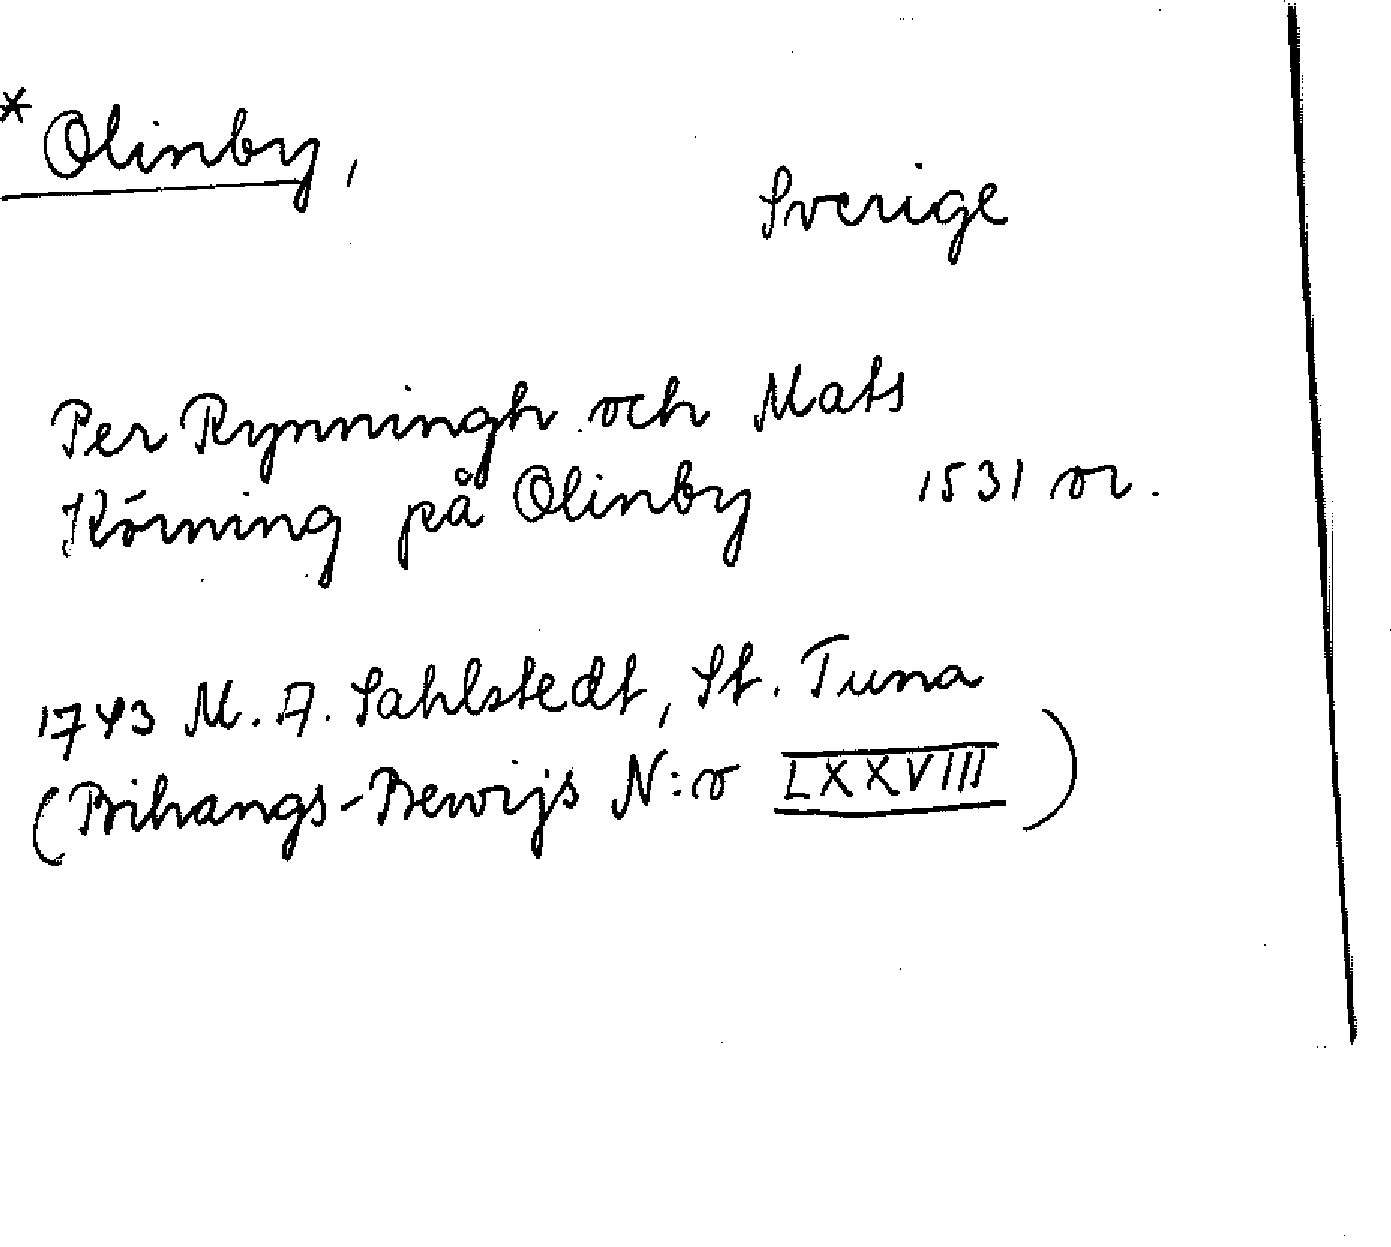 *Olinby,
Sverige
Per Rynningh och Mats
Körning på Olinby 1531 or.
1743 M. A. Sahlstedt, St. Tuna
(Bihangs-Bewijs N:o LXXVIII)